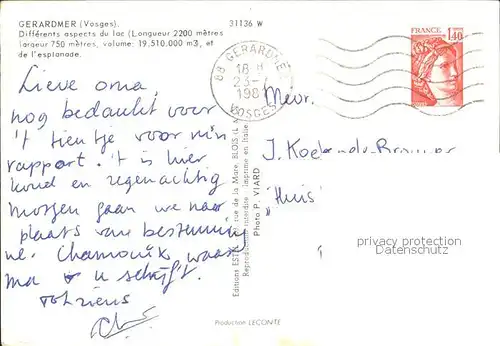 GERARDMER (Vosges).
Différents aspects du lac (Longueur 2200 mètres
largeur 750 mètres, volume: 19.510.000 m3, et
de l'esplanade.
31136 W
88 GERARDMER
18 H
23-7
1981
VOSGES
FRANCE
1,40
Lieve oma,
nog bedankt voor
't tientje voor mijn
rapport. 't is hier
koud en regenachtig
morgen gaan we naar
plaats van bestemming
nl. Chamonix waar
ma u schrijft.
tot ziens
Mevr.
J.
"Huis
Editions EST rue de la Mare, BLOIS
Reproduction interdite Imprimé en Italie
Photo P. VIARD
Production LECONTE
privacy protection
Datenschutz